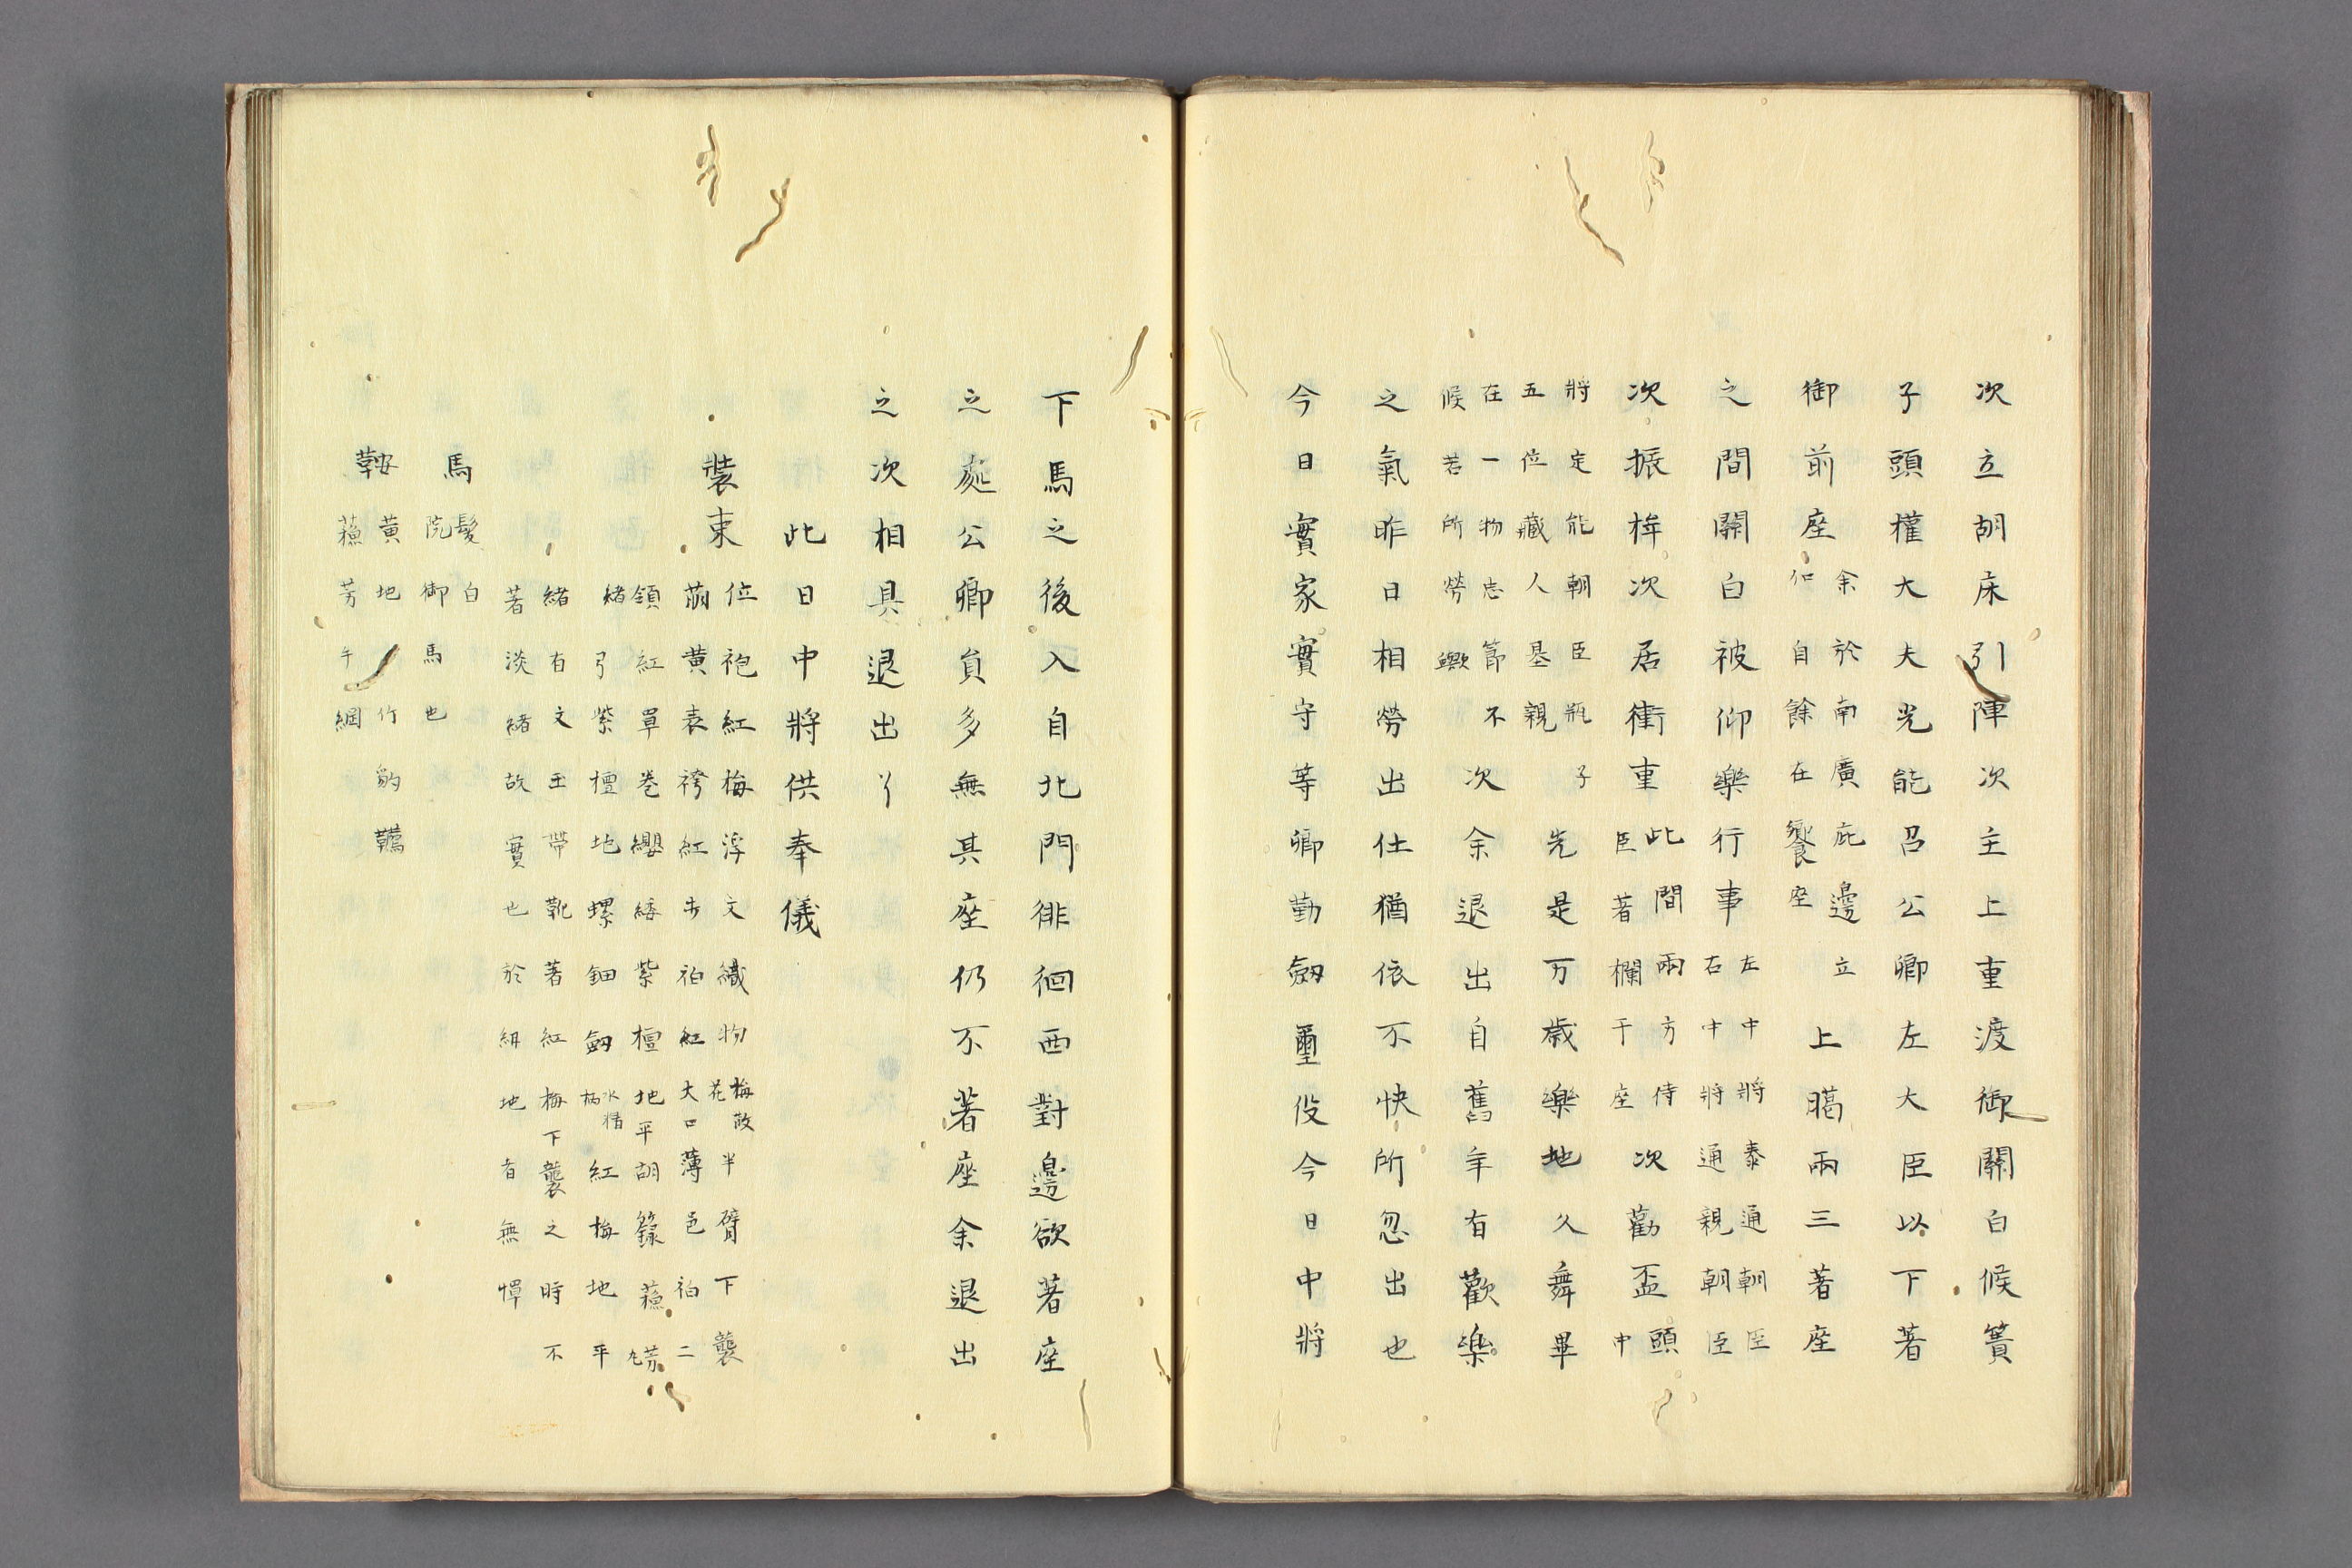 次立胡床引陣次主上重渡御關白候簀
子頭權大夫光能召公卿左大臣以下著
御前座余於南廣庇邊立
仰自餘在饗座上臈兩三著座
之間關白被仰樂行事左中將泰通朝臣
右中將通親朝臣
次振桙次居衝重此間兩方侍
臣著欄干座次勸盃頭中
將定能朝臣瓶子
五位藏人基親先是万歳樂地久舞畢
在一物忌節不
候若所勞歟次余退出自舊年有歡樂
之氣昨日相勞出仕猶依不快所忽出也
今日實家實守等卿勤劔璽役今日中將
下馬之後入自北門徘徊西對邊欲著座
之處公卿負多無其座仍不著座余退出
之次相具退出了
此日中將供奉儀
裝束
位袍紅梅浮文織物梅散花半臂下襲
萠黄表袴紅赤袙紅大口薄色袙二
領紅單卷纓緌紫檀地平胡籙蘓芳丸
緒弓紫檀地螺鈿劔水精柄紅梅地平
緒有文玉帶靴著紅梅下襲之時不
著淡緒故實也於紺地者無憚
馬髪白
院御馬也
鞍黄地竹豹韉
蘓芳手綱